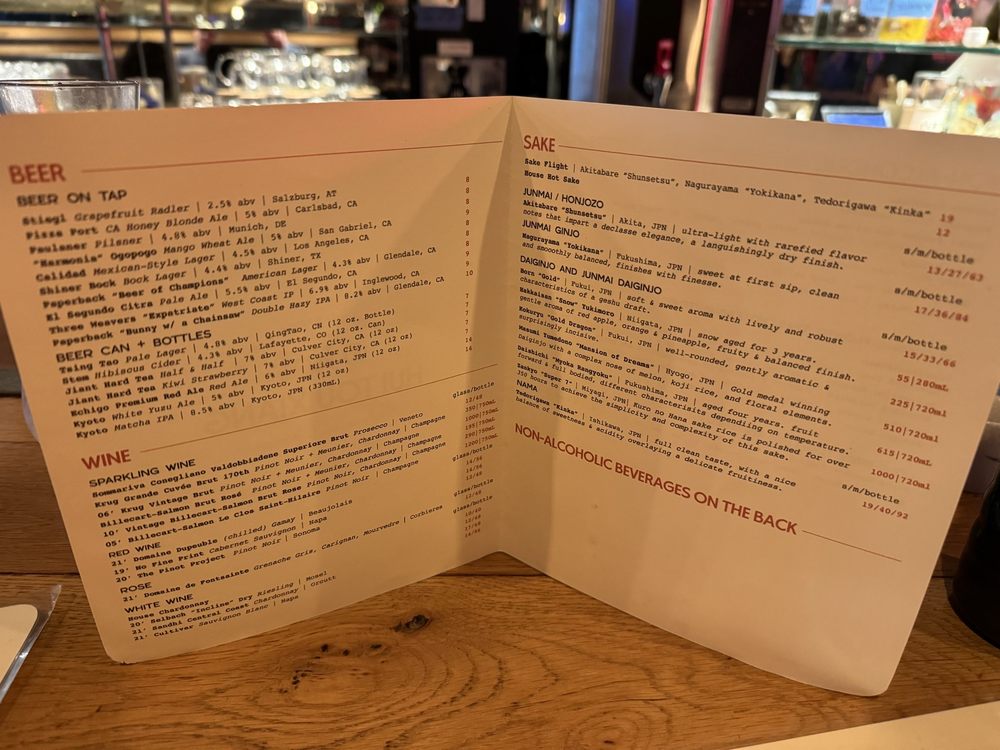 BEER
BEER ON TAP
Stiegl Grapefruit Radler | 2.5% abv | Salzburg, AT 8
Pizza Port CA Honey Blonde Ale | 5% abv | Carlsbad, CA 8
Paulaner Pilsner | 4.8% abv | Munich, DE
"Harmonia" Ogopogo Mango Wheat Ale | 5% abv | San Gabriel, CA
Calidad Mexican-Style Lager | 4.5% abv | Los Angeles, CA
Shiner Bock Bock Lager | 4.4% abv | Shiner, TX
Paperback "Beer of Champions" American Lager | 4.3% abv | Glendale, CA
El Segundo Citra Pale Ale | 5.5% abv | El Segundo, CA
Three Weavers "Expatriate" West Coast IP | 6.9% abv | Inglewood, CA
Paperback "Bunny w/ a Chainsaw" Double Hazy IPA | 8.2% abv | Glendale, CA
BEER CAN + BOTTLES
Tsing Tao Pale Lager | 4.8% abv | QingTao, CN (12 oz. Bottle)
Stem Hibiscus Cider | 4.3% abv | Lafayette, CO (12 oz. Can)
Jiant Hard Tea Half & Half | 7% abv | Culver City, CA (12 oz)
Jiant Hard Tea Kiwi Strawberry | 7% abv | Culver City, CA (12 oz)
Echigo Premium Red Ale Red Ale | 5% abv | Niigata, JPN (12 oz)
Kyoto White Yuzu Ale | 5% abv | Kyoto, JPN (12 oz)
Kyoto Matcha IPA | 8.5% abv | Kyoto, JPN (330mL) 14
WINE
SPARKLING WINE glass/bottle
Sommariva Conegliano Valdobbiadene Superiore Brut Prosecco | Veneto
Krug Grande Cuvée Brut 170th Pinot Noir + Meunier, Chardonnay | Champagne
06' Krug Vintage Brut Pinot Noir + Meunier, Chardonnay | Champagne
Billecart-Salmon Brut Rosé Pinot Noir + Meunier, Chardonnay | Champagne
10' Vintage Billecart-Salmon Brut Rose Pinot Noir, Chardonnay | Champagne
05' Billecart-Salmon Le Clos Saint-Hilaire Pinot Noir | Champagne
RED WINE glass/bottle
21' Domaine Dupeuble (chilled) Gamay | Beaujolais
19' No Fine Print Cabernet Sauvignon | Napa
20' The Pinot Project Pinot Noir | Sonoma
ROSE glass/bottle
21' Domaine de Fontsainte Grenache Gris, Carignan, Mourvedre | Corbieres
WHITE WINE glass/bottle
House Chardonnay
20' Selbach "Incline" Dry Riesling | Mosel
21' Sandhi Central Coast Chardonnay | Orcutt
21' Cultivar Sauvignon Blanc | Napa
SAKE
Sake Flight | Akitabare "Shunsetsu", Nagurayama "Yokikana", Tedorigawa "Kinka" 19
House Hot Sake 12
JUNMAI / HONJOZO s/m/bottle
Akitabare "Shunsetsu" | Akita, JPN | ultra-light with rarefied flavor 13/27/63
notes that impart a declasse elegance, a languishingly dry finish.
JUNMAI GINJO s/m/bottle
Nagurayama "Yokikana" | Fukushima, JPN | sweet at first sip, clean 17/36/84
and smooothly balanced, finishes with finesse.
DAIGINJO AND JUNMAI DAIGINJO s/m/bottle
Born "Gold" | Fukui, JPN | soft & sweet aroma with lively and robust 15/33/66
characteristics of a geshu draft.
Hakkaisan "Snow Yukimoro" | Niigata, JPN | snow aged for 3 years. 55|280mL
gentle aroma of red apple, orange & pineapple, fruity & balanced finish.
Kokuryu "Gold Dragon" | Fukui, JPN | well-rounded, gently aromatic & 225|720ml
surprisingly incisive.
Masumi Tomodono "Mansion of Dreams" | Hyogo, JPN | Gold medal winning 510|720ml
Daiginjo with a complex nose of melon, koji rice, and floral elements.
Daishichi "Myoka Rangyoku" | Fukushima, JPN | aged four years. fruit 615|720mL
forward & full bodied, different characterisits depending on temperature.
Zankyo "Super 7" | Miyagi, JPN| Kuro no Hana sake rice is polished for over 1000|720ml
350 hours to achieve the simplicity and complexity of this sake.
NAMA s/m/bottle
Tedorigawa "Kinka" | Ishikawa, JPN | full clean taste, with a nice 19/40/92
balance of sweetness & acidity overlaying a delicate fruitiness.
NON-ALCOHOLIC BEVERAGES ON THE BACK